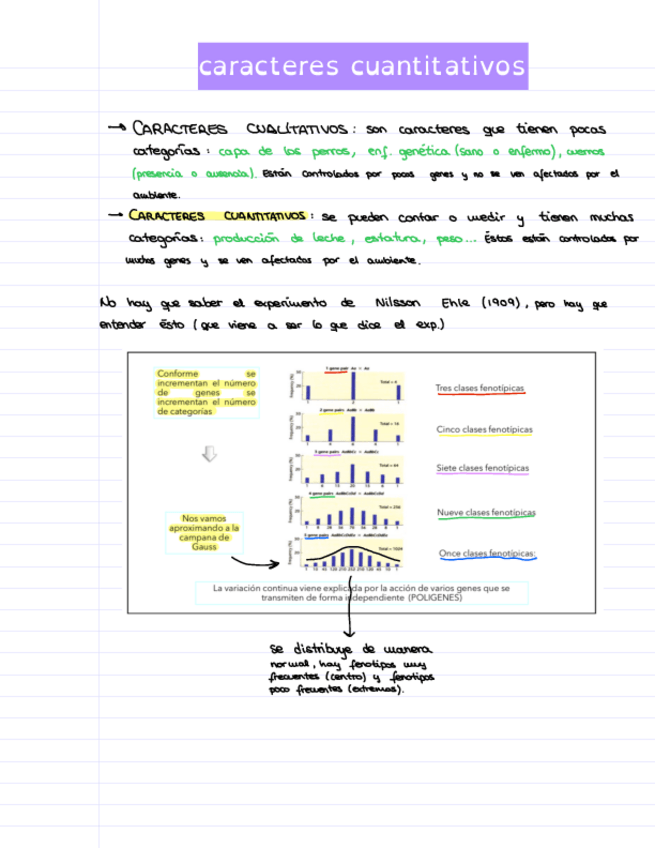 caracteres cuantitativos
→ CARACTERES CUALITATIVOS: son caracteres que tienen pocas
categorías: capa de los perros, enf. genética (sano o enfermo), cuernos
(presencia o ausencia). Están controlados por pocos genes y no se ven afectados por el
ambiente.
→ CARACTERES CUANTITATIVOS: se pueden contar o medir y tienen muchas
categorías: producción de leche, estatura, peso... Éstos están controlados por
muchos genes y se ven afectados por el ambiente.
No hay que saber el experimento de Nilsson Ehle (1909), pero hay que
entender ésto (que viene a ser lo que dice el exp.)
Conforme se
incrementan el número
de genes se
incrementan el número
de categorías
Nos vamos
aproximando a la
campana de
Gauss
1 gene pair Aa × Aa
Frequency (%)
Total = 4
Tres clases fenotípicas
2 gene pairs AaBb × AaBb
Frequency (%)
Total = 16
Cinco clases fenotípicas
3 gene pairs AaBbCc × AaBbCc
Frequency (%)
Total = 64
Siete clases fenotípicas
4 gene pairs AaBbCcDd × AaBbCcDd
Frequency (%)
Total = 256
Nueve clases fenotípicas
5 gene pairs AaBbCcDdEe × AaBbCcDdEe
Frequency (%)
Total = 1024
Once clases fenotípicas:
La variación continua viene explicada por la acción de varios genes que se
transmiten de forma independiente (POLIGENES)
Se distribuye de manera
normal, hay fenotipos muy
frecuentes (centro) y fenotipos
poco frecuentes (extremos).